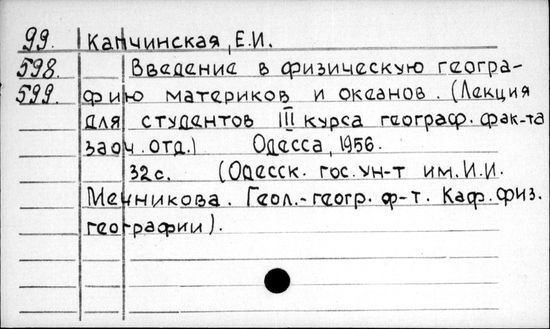 99. Капчинская, Е.И.
598. Введение в физическую геогра-
599. фию материков и океанов. (Лекция
для студентов III курса географ. фак-та
заоч. отд.) Одесса, 1956.
32с. (Одесск. гос. ун-т им. И.И.
Мечникова. Геол.-геогр. ф-т. Каф. физ.
географии).